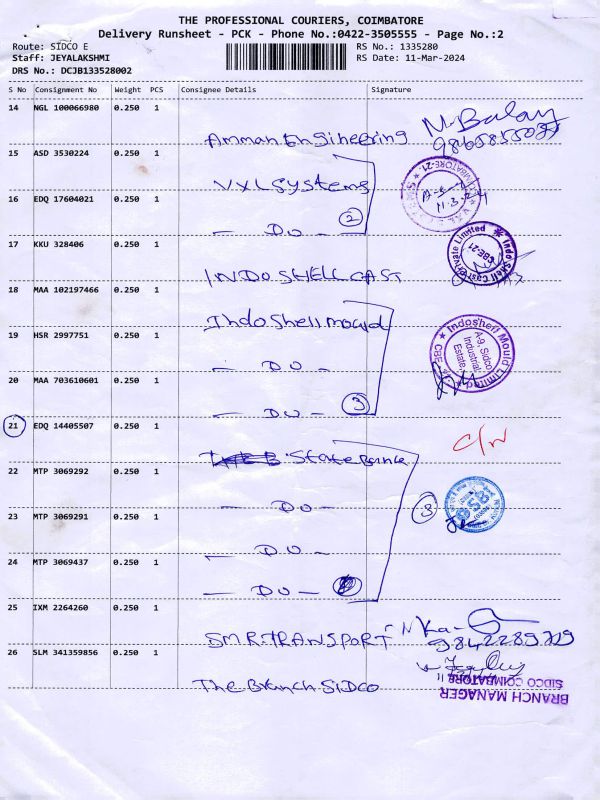 THE PROFESSIONAL COURIERS, COIMBATORE
Delivery Runsheet - PCK - Phone No.:0422-3505555 - Page No.:2
Route: SIDCO E
Staff: JEYALAKSHMI
DRS No.: DCJB133528002
RS No.: 1335280
RS Date: 11-Mar-2024
S No Consignment No Weight PCS Consignee Details Signature
14 NGL 100066980 0.250 1
Amman Engineering
15 ASD 3530224 0.250 1
VXL Systems
16 EDQ 17604021 0.250 1
— DO — 2
17 KKU 328406 0.250 1
INDO SHELL CAST
18 MAA 102197466 0.250 1
Indo Shell mould
19 HSR 2997751 0.250 1
— DO —
20 MAA 703610601 0.250 1
— DO — 3
21 EDQ 14405507 0.250 1
State Bank
22 MTP 3069292 0.250 1
— DO —
23 MTP 3069291 0.250 1
— DO — 3
24 MTP 3069437 0.250 1
— DO —
25 IXM 2264260 0.250 1
SMR.TRANSPORT
26 SLM 341359856 0.250 1
The Branch SIDCO
Indo Shell Cast Private Limited
CBE-21
Indoshell Mould Limited
A-9, Sidco
Industrial
Estate,
CBE
SB
9842289709
BRANCH MANAGER
SIDCO COIMBATORE